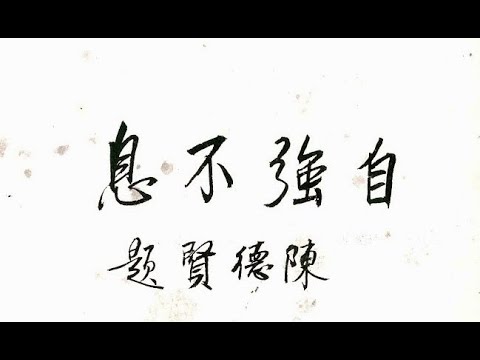 自強不息
陳德賢題